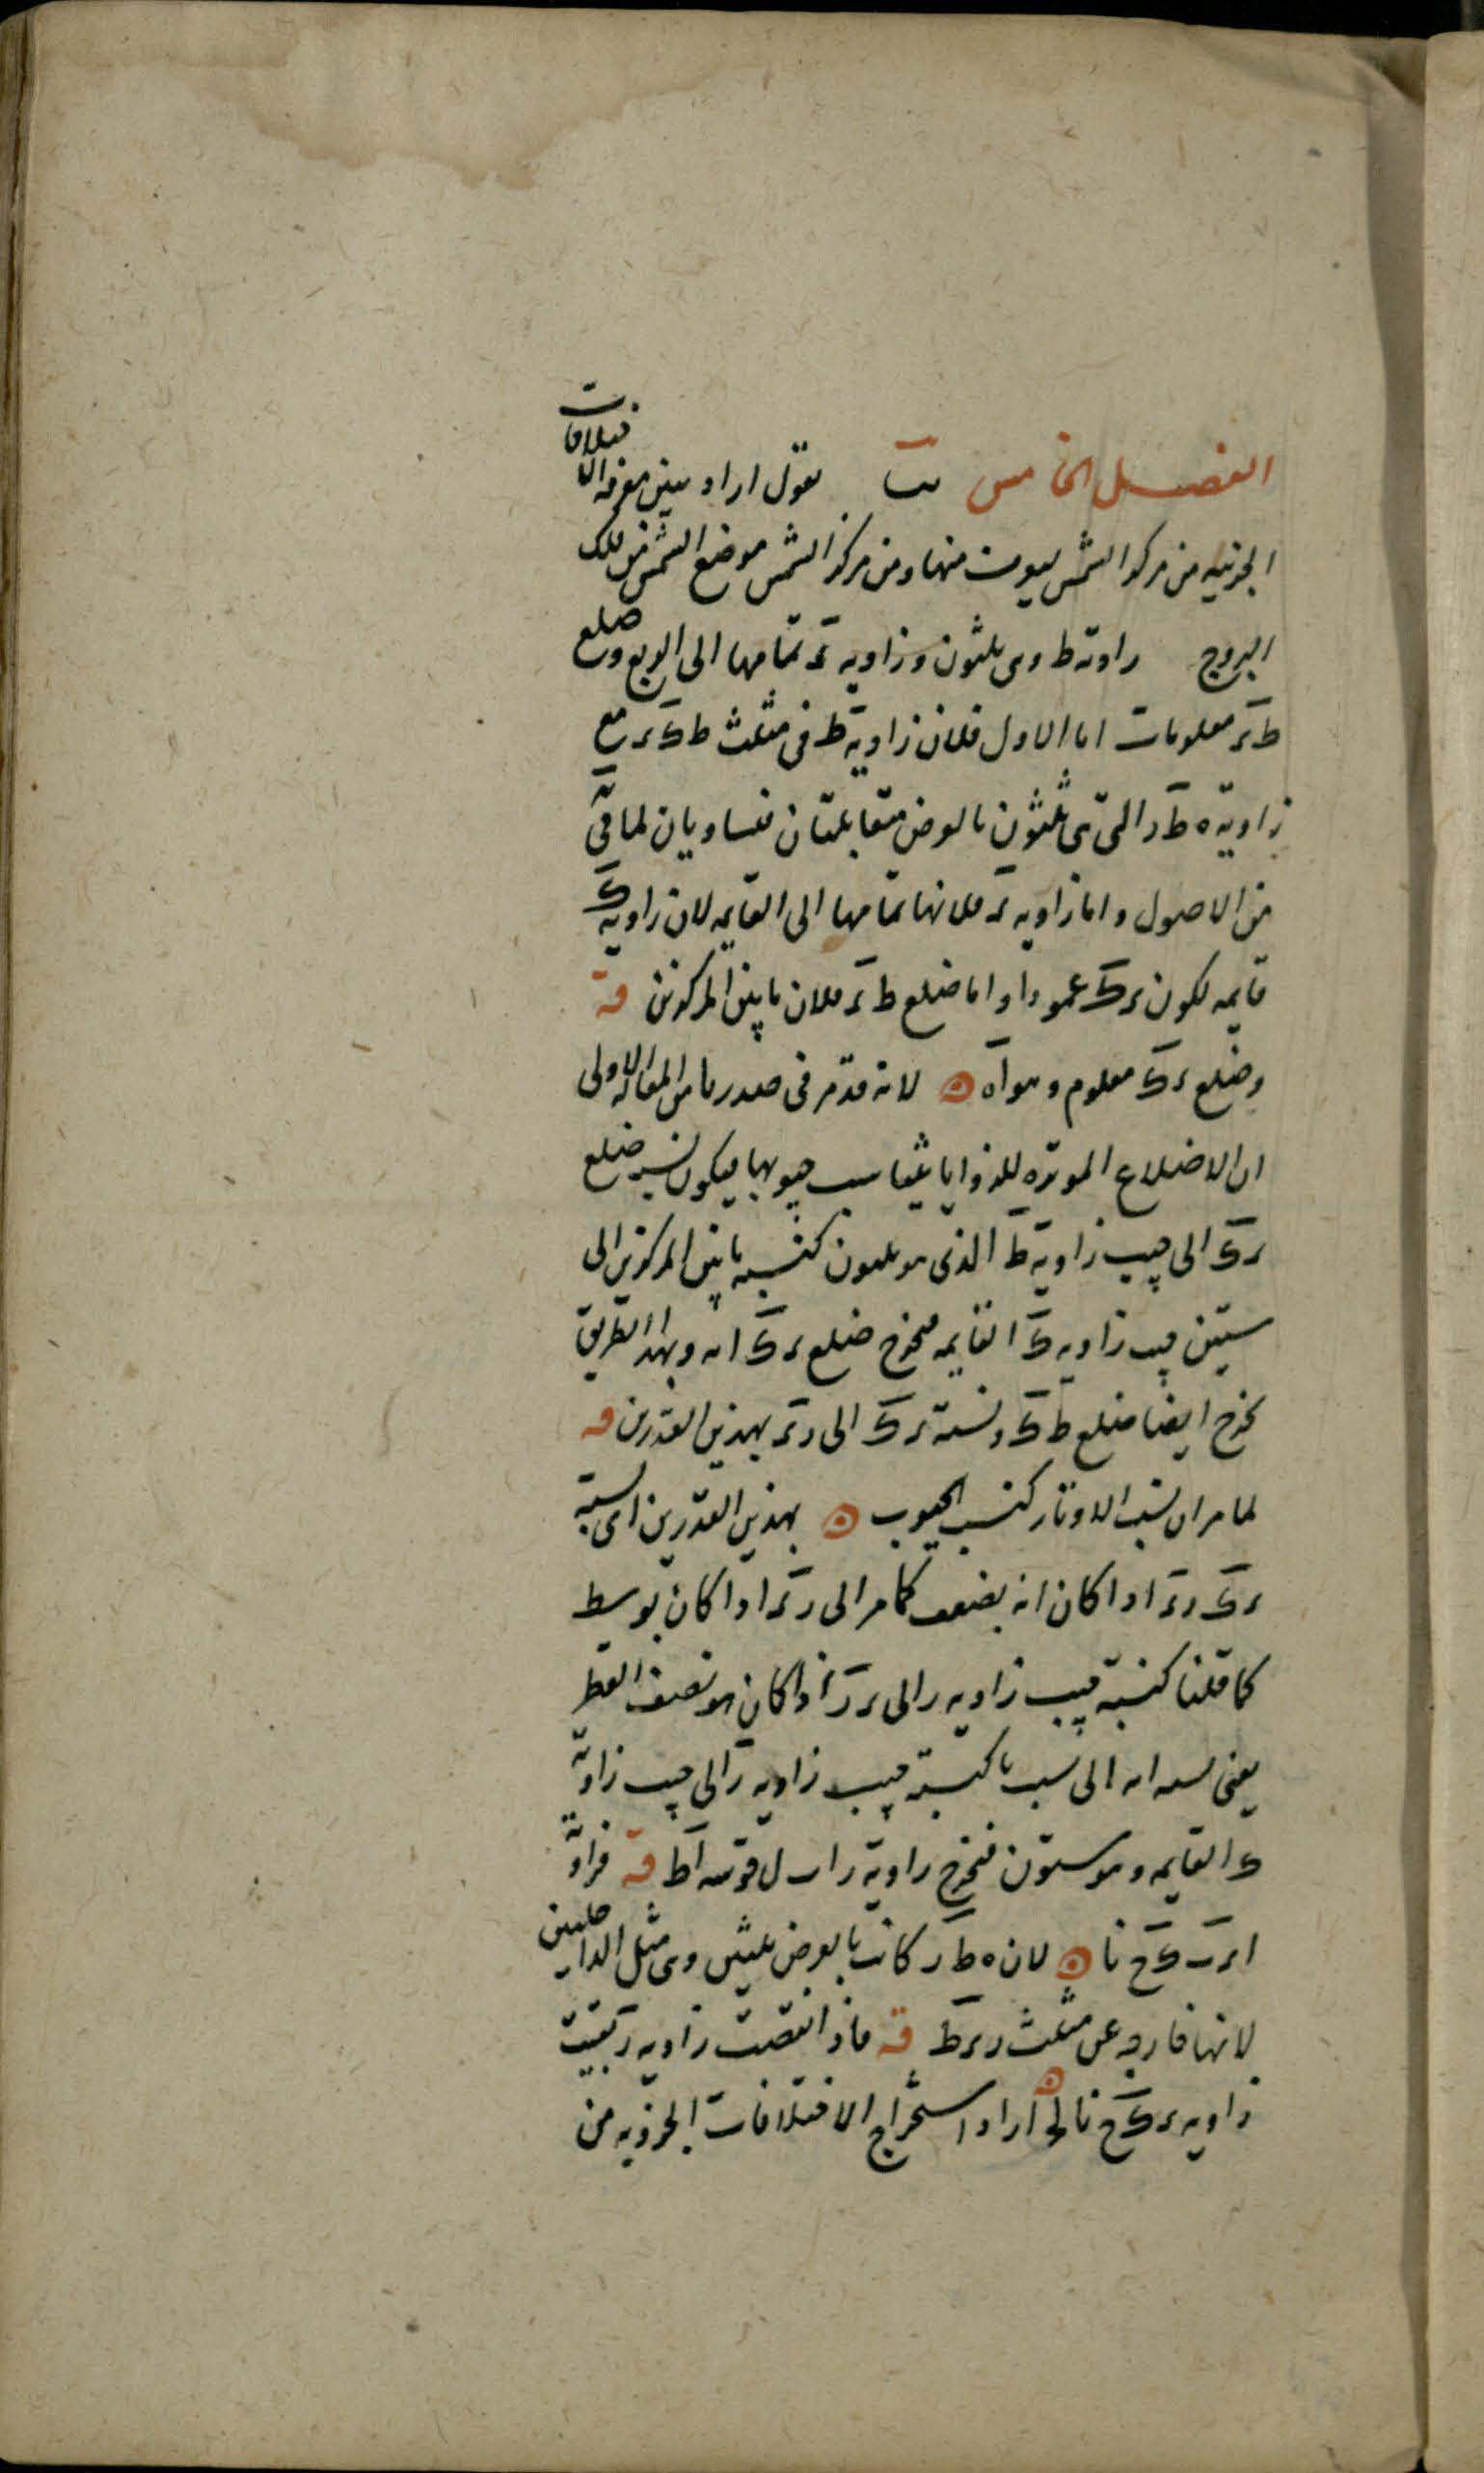 الفصل الخامس يقول اراد يبين معرفة الاختلافات
الجزئيه من مركز الشمس ليعرف منها ومن مركز الشمس موضع الشمس من فلك
البروج زاوية ط وهى ثلثون وزاويه ى تمامها الى الربع وضلع
ط ى معلومات اما الاول فلان زاوية ط فى مثلث ط ك ى مع
زاوية ه ط ر التى هى ثلثون بالفرض متقابلتان متساويان لما فى
من الاصول واما زاويه ى فلانها تمامها الى القايمه لان زاوية ك
قايمه لكون ى ك عمودا واما ضلع ط ى فلان ما بين المركزين قه
وضلع ى ك معلوم وهو ا ه لانه قد مر فى صدر المقاله الاولى
ان الاضلاع الموتره للزوايا يناسب جيوبها فيكون نسبه ضلع
ى ك الى جيب زاوية ط الذى هو ثلثون كنسبه ما بين المركزين الى
ستين جيب زاويه ك القايمه فيخرج ضلع ى ك ا ه وبهذا الطريق
يخرج ايضا ضلع ط ك ونسبة ى ك الى ر ى بهذين القدرين قه
لما مر ان نسب الاوتار كنسب الجيوب بهذين القدرين اى نسبة
ى ك ر ى اذا كان انه بضعف كما مر الى ر ى اذا كان بوسط
كما قلنا كنسبة جيب زاويه ر الى ى ر اذا كان هو نصف القطر
يعنى نسبه ا ه الى كنسبة جيب زاويه ر الى جيب زاوية
ك القايمه وهو ستون فيخرج زاوية ر قوسه ا ط قه فزاوية
لان ه ط ر كانت بالفرض ثلثين وهى مثل الداخلتين
لانها خارجه عن مثلث ر ى ط قه فاذا نقصت زاويه ر بقيت
زاويه اراد استخراج الاختلافات الجزئيه من